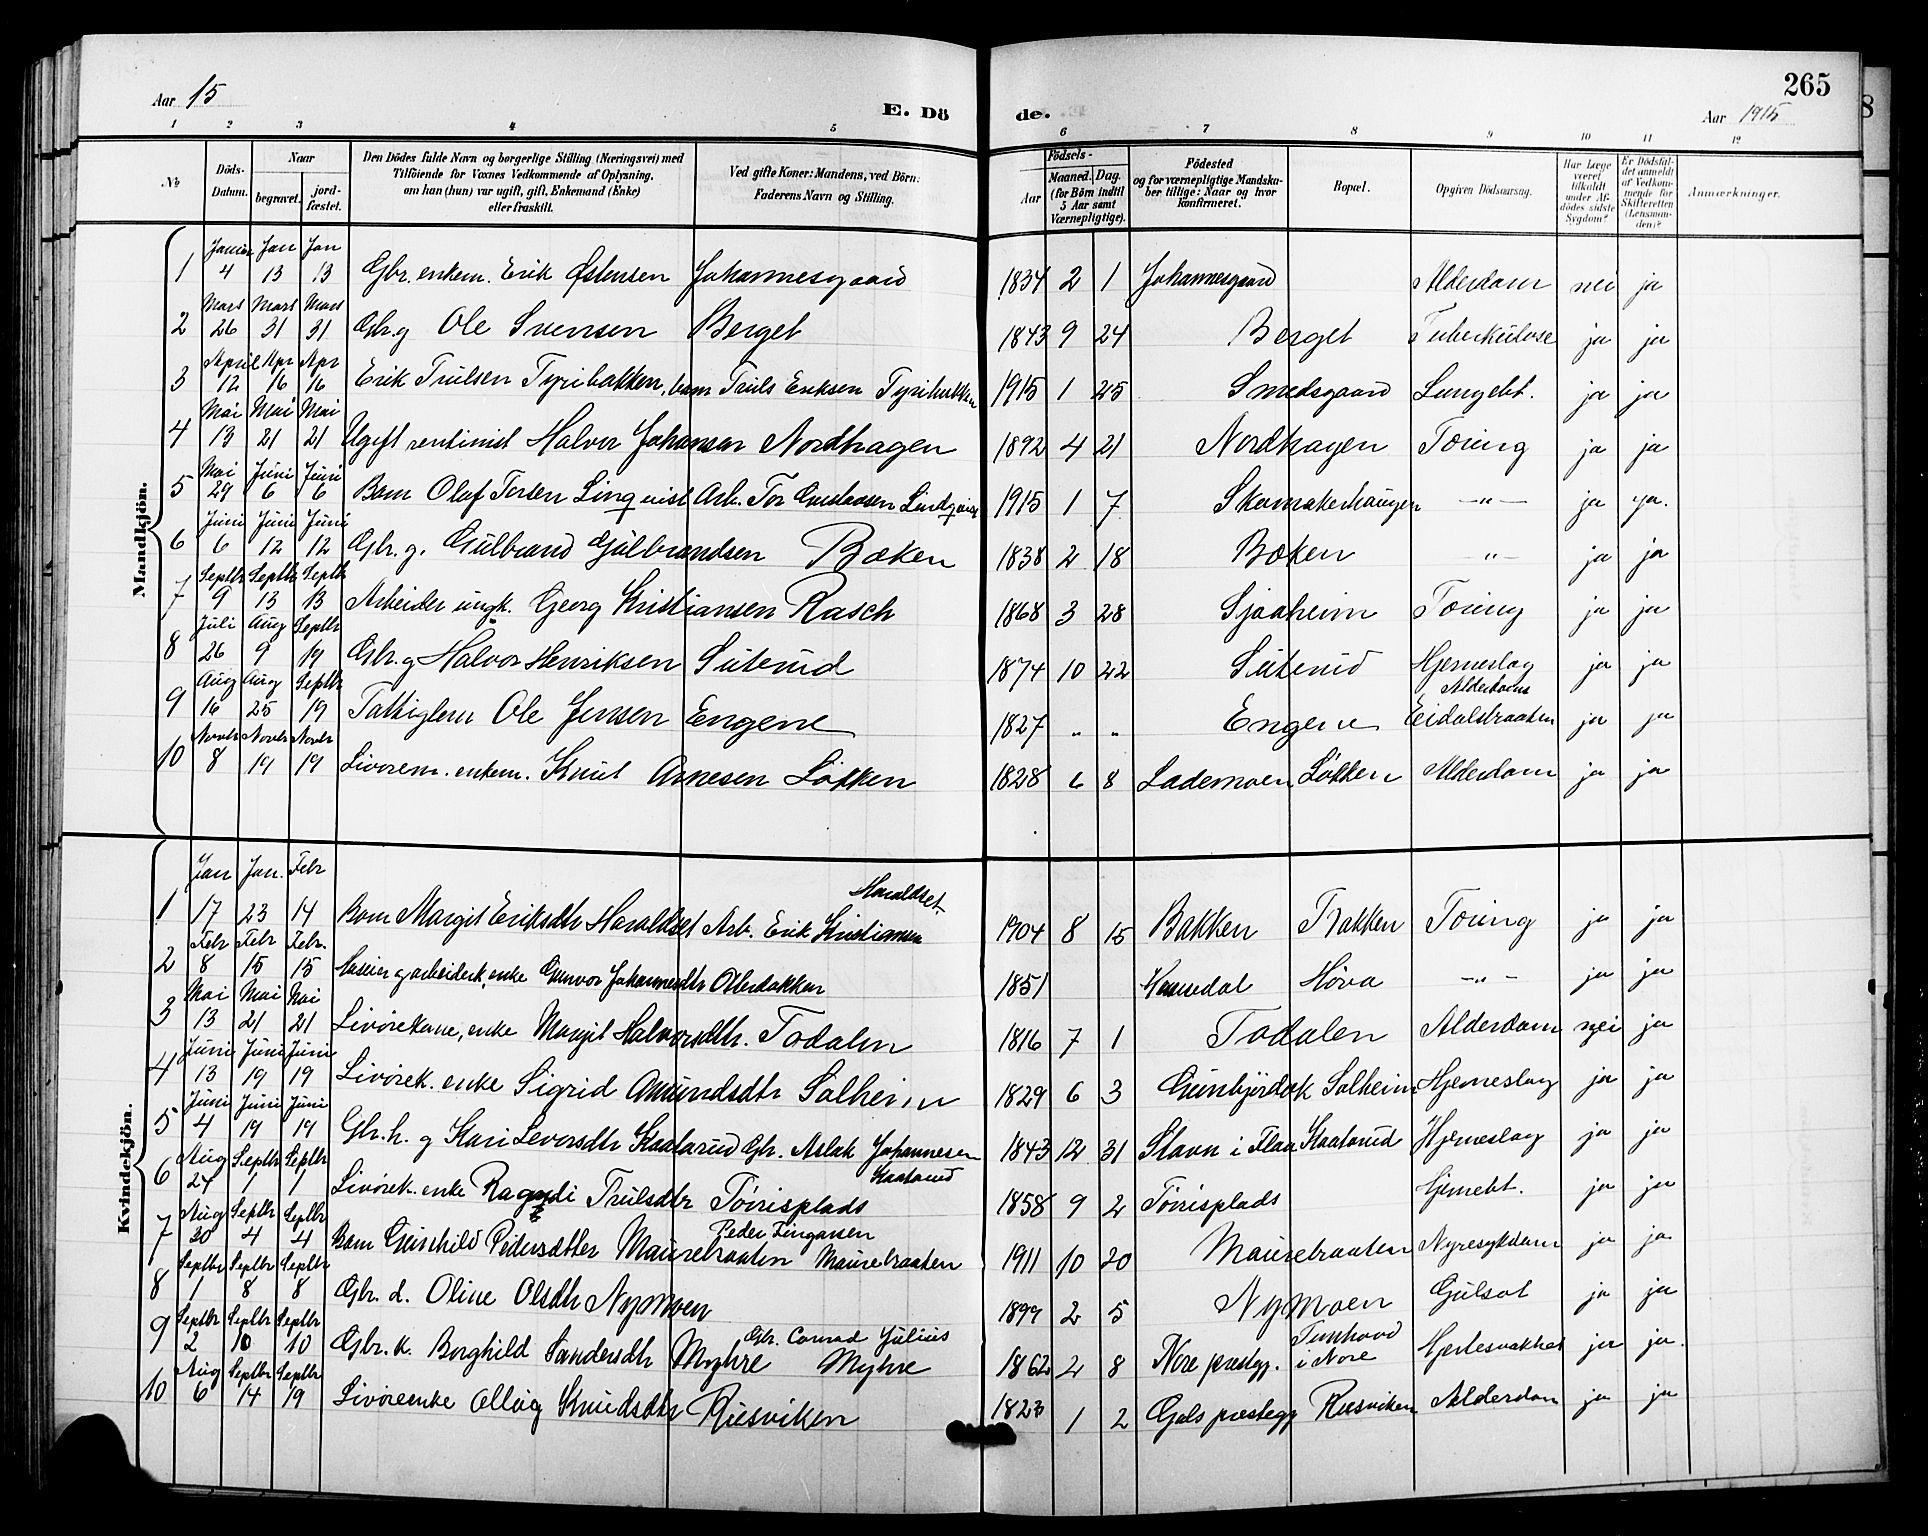 265
Aar 15 E. Dö de. Aar 1915
1 2 3 4 5 6 7 8 9 10 11 12
No
Döds-Datum.
Naar
begravet.
jord-fæstet.
Den Dödes fulde Navn og borgerlige Stilling (Næringsvei) med
Tilföiende for Voxnes Vedkommende af Oplysning.
om han (hun) var ugift, gift, Enkemand (Enke)
eller fraskilt.
Ved gifte Koner: Mandens, ved Börn:
Faderens Navn og Stilling.
Födsels-
Aar
Maaned. Dag.
(for Börn indtil
5 Aar samt
Værnepligtige).
Födested
og for værnepligtige Mandska-
ber tillige: Naar og hvor
konfirmeret.
Bopæl.
Opgiven Dödsaarsag.
Har Læge
været
tilkaldt
under Af-
dödes sidste
Sygdom?
Er Dödsfal-
det anmeldt
af Vedkom-
mende for
Skifteretten
(Lensman-
den)?
Anmærkninger.
Mandkjön.
1 Januar 4 Jan 13 Jan 13 Gbr. enkem. Erik Østensen Johannesgaard 1834 2 1 Johannesgaard Alderdom nei ja
2 Mars 26 Mars 31 Mars 31 Gbr. g Ole Svensen Berget 1843 9 24 Berget Tuberkulose ja ja
3 April 12 Apr 16 Apr 16 Erik Trulsen Tyribakken, barn Truls Eriksen Tyribakken 1915 1 25 Smedsgaard Lungebt. ja ja
4 Mai 13 Mai 21 Mai 21 Ugift rentinist Halvor Johansen Nordhagen 1892 4 21 Nordhagen Tæring ja ja
5 Mai 29 Juni 6 Juni 6 Barn Olaf Torsen Linqvist Arb. Tor Lindqvist 1915 1 7 Skomakerhaugen -"- ja ja.
6 Juni 6 Juni 12 Juni 12 Gbr. g. Gulbrand Gulbrandsen Bæken 1838 2 18 Bæken -"- ja ja
7 Septbr 9 Septbr 13 Septbr 13 Arbeider ungk. Georg Kristiansen Rasch 1868 3 28 Sjaaheim Tæring ja ja
8 Juli 26 Aug 9 Septbr 19 Gbr. g Halvor Henriksen Suterud 1874 10 22 Suterud Hjerneslag ja ja
9 Aug 16 Aug 25 Septbr 19 Fattiglem Ole Jensen Engene 1827 " " Engene Alderdoms Eidalsbraaten ja ja
10 Novbr 8 Novbr 19 Novbr 19 Livørem. enkem. Knut Arnesen Løkken 1828 6 8 Lademoen Løkken Alderdom ja ja
Kvindekjön.
1 Jan 17 Jan. 23 Febr 14 Barn Margit Eriksdtr Haraldset Arb. Erik Kristiansen Haraldset 1904 8 15 Bakken Bakken Tæring ja ja
2 Febr 8 Febr 15 Febr. 15 arbeidersk, enke Gunvor Johannesdtr 1851 Hemsedal Høva -"- ja ja
3 Mai 13 Mai 21 Mai 21 Livørekone, enke Margit Halvorsdtr. Todalen 1816 7 1 Todalen Alderdom nei ja
4 Juni 13 Juni 19 Juni 19 Livørek. enke Sigrid Amundsdtr Solheim 1829 6 3 Solheim Hjerneslag ja ja
5 Juni 4 Juni 19 Juni 19 Gbr. h. g Kari Leversdtr Kaatarud Gbr. Aslak Johannesen Kaatarud 1843 12 31 Stavn i Flaa Kaatarud Hjerneslag ja ja
6 Aug 24 Septbr 1 Septbr 1 Livørek. enke Ragndi Trulsdtr Tørrisplads 1858 9 2 Tørrisplads Hjernebt. ja ja
7 Aug 30 Septbr 4 Septbr 4 Barn Gunhild Pedersdatter Maurebraaten Peder Maurebraaten 1911 10 20 Maurebraaten Nyresykdom ja ja
8 Septbr 1 Septbr 8 Septbr 8 Gbr. d. Oline Olsdtr Nymoen 1899 2 5 Nymoen Gulsot ja ja
9 Septbr 2 Septbr 10 Septbr 10 Gbr. k. Borghild Sandersdtr Myhre Gbr. Conrad Julius Myhre 1862 2 8 Nore prestegj. Tunhovd i Nore Hjertesvakhet ja ja.
10 Aug 6 Septbr 14 Septbr 19 Livøreenke Ollaug Knudsdtr Rusviken 1823 1 2 Gols prestegj Rusviken Alderdom ja ja